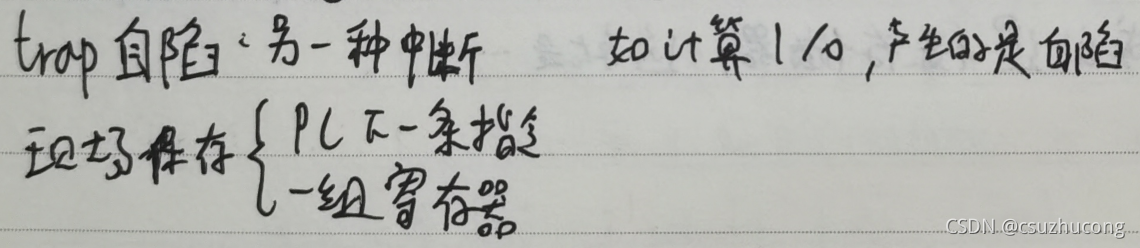 trap 自陷：另一种中断 如计算1/0,产生的是自陷
现场保存{PC下一条指令
一组寄存器
CSDN @csuzhucong